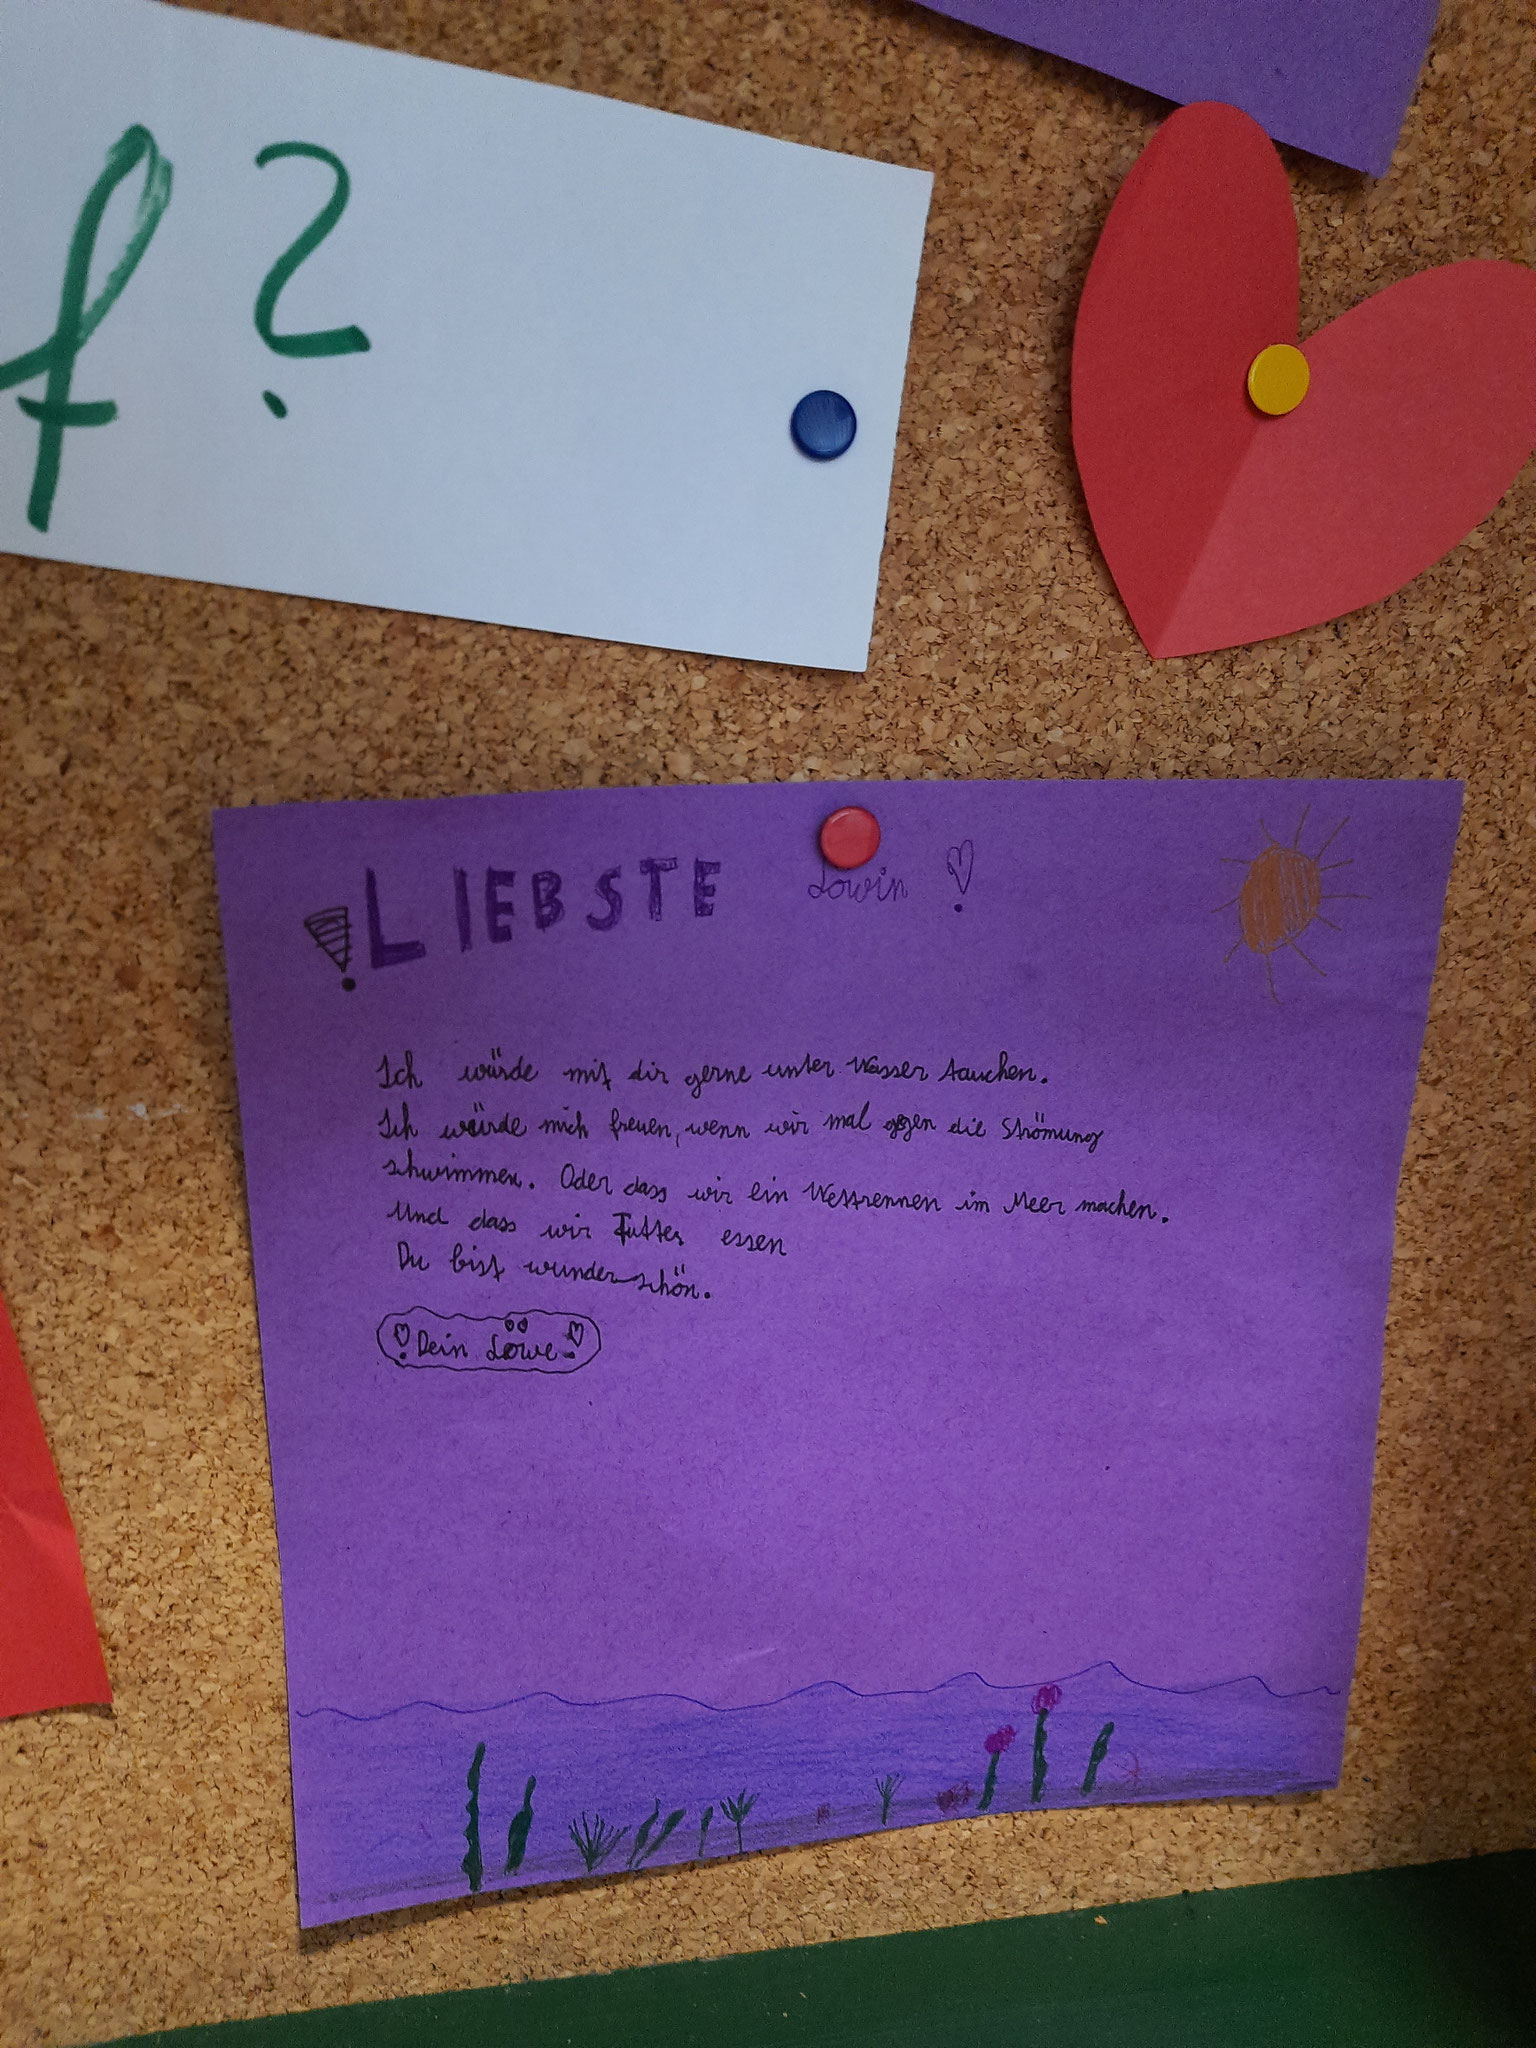 f?
!LIEBSTE Löwin !
Ich würde mit dir gerne unter Wasser tauchen.
Ich würde mich freuen, wenn wir mal gegen die Strömung
schwimmen. Oder dass wir ein Wettrennen im Meer machen.
Und dass wir Futter essen
Du bist wunderschön.
!Dein Löwe!